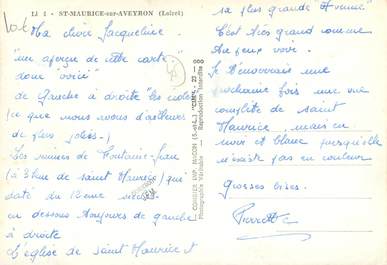 Li 1 - ST-MAURICE-sur-AVEYRON (Loiret)
Ma chère Jacqueline
une aperçu de cette carte
donc "voici"
de Gauche à droite "les
(ce que nous avons d'ailleurs
de plus jolies)
Les ruines de Fontaine-Jean
(à 3 km de saint Maurice) qui
date du 12ème siècle
en dessous toujours de gauche
à droite
L'église de saint Maurice et
COMBIER IMP. MACON (S.-et-L.) "CIM" - 23 - 000
Photographie Véritable — Reproduction Interdite
sa plus grande Avenue"
C'est très grand comme
tu peux voir.
Je t'enverrais une
prochaine fois une vue
complète de saint
Maurice, mais en
noir et blanc puisqu'elle
n'existe pas en couleur
Grosses bises.
Pierrette